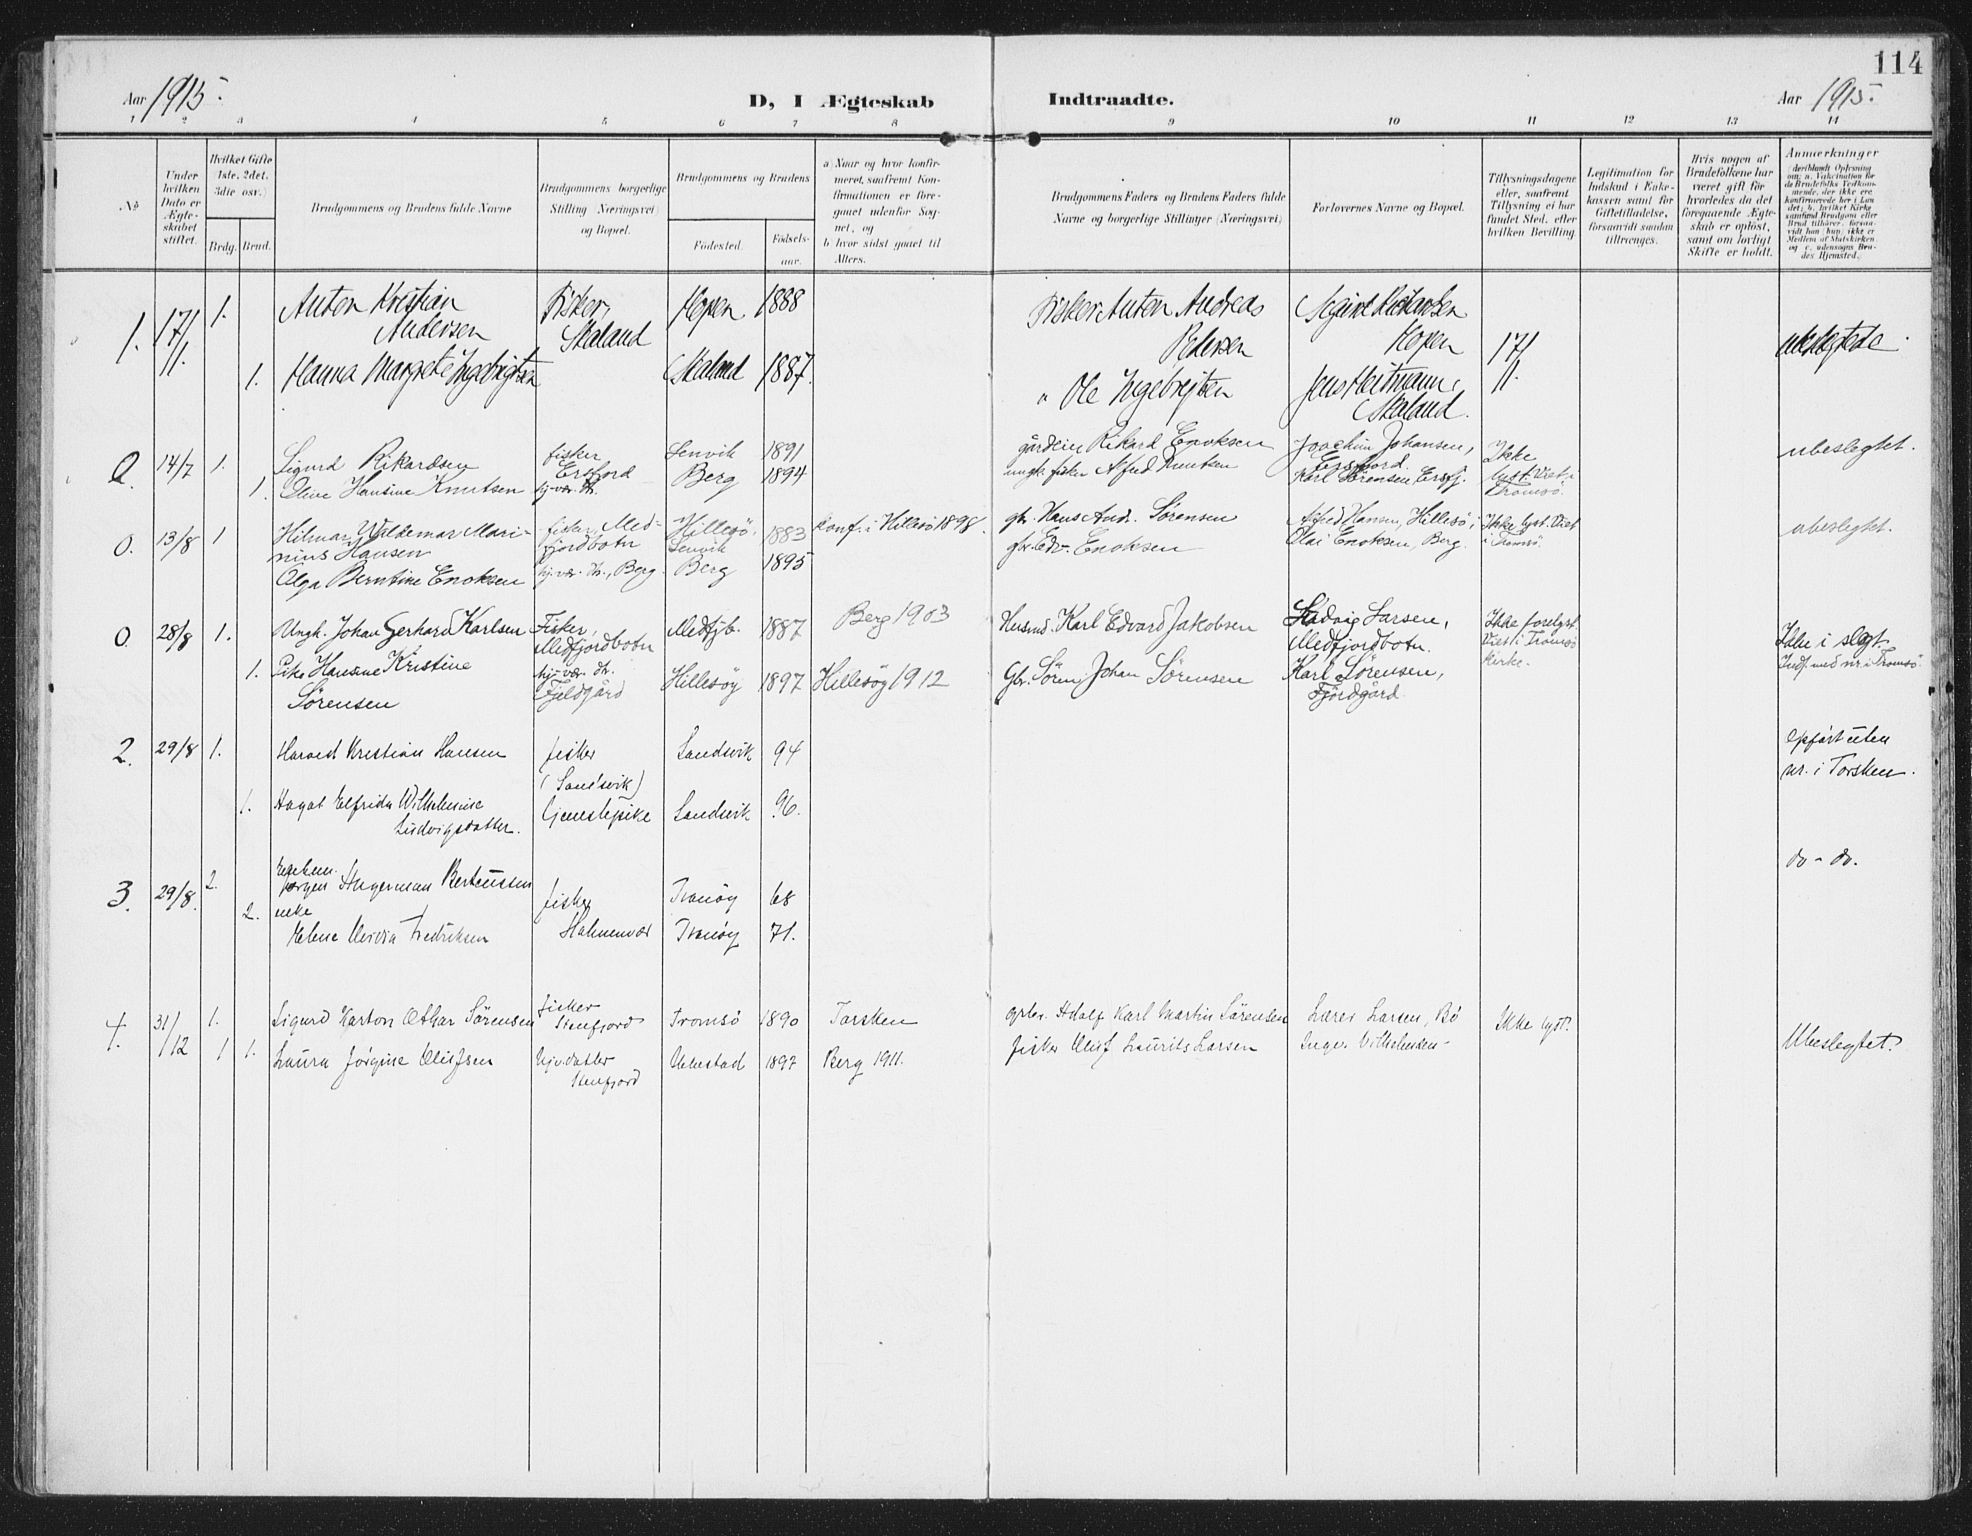 114
Aar 1915.
D, I Ægteskab
Indtraadte.
Aar 1915.
1 2 3 4 5 6 7 8 9 10 11 12 13 14
No
Under hvilken Dato er Ægteskabet stiftet.
Hvilket Gifte 1ste, 2det, 3die osv.)
Brdg. Brud.
Brudgommens og Brudens fulde Navne
Brudgommens borgerlige Stilling (Næringsvei) og Bopæl.
Brudgommens og Brudens
Fødested.
Fødselsaar.
a) Naar og hvor konfirmeret, saafremt Konfirmationen er foregaaet udenfor Sognet, og
b) hvor sidst gaaet til Alters.
Brudgommens Faders og Brudens Faders fulde Navne og borgerlige Stillinger (Næringsvei)
Forlovernes Navne og Bopæl.
Tillysningsdagene eller, saafremt Tillysning ei har fundet Sted, efter hvilken Bevilling.
Legitimation for Indskud i Enkekassen samt for Giftetilladelse, forsaavidt saadan tiltrænges.
Hvis nogen af Brudefolkene har været gift før hvorledes da det foregaaende Ægteskab er opløst, samt om lovligt Skifte er holdt.
Anmærkninger
(deriblandt Oplysning om: a. Vakcination for de Brudefolks Vedkommende, der ikke ere konfirmerede her i Landet; b. hvilket Kirkesamfund Brudgom eller Brud tilhører, forsaavidt han (hun) ikke er Medlem af Statskirken og c. udensogns Brudes Hjemsted.)
1. 17/11. 1. Anton Kristian Andersen Fisker, Skaland Hopen 1888 Fisker Anton Andreas Pedersen Sigurd Rikardsen Hopen 17/11. ubeslegtede.
1. Hanna Margrete Ingebrigtsen Skaland 1887. " Ole Ingebrigtsen Jens Hertmann, Skaland.
0. 14/7 1. Sigurd Rikardsen fisker Ersfjord Senvik 1891 gårdein Rikard Enoksen Joachim Johansen, Ersfjord. Ikke lyst. Viet i Tromsø. ubeslegtet.
1. Oline Hansine Knutsen hj. vær. dt. Berg 1894 ungk. fisker Alfred Knutsen Karl Sørensen, Ersfj.
0. 13/8 1 Hilmar Valdemar Marinius Hansen fisker, Medfjordbotn Hillesö, Senvik 1883 konf. i Hillesö 1898. gbr. Hans And. Sørensen Alfred Hansen, Hillesö, Ikke lyst. Viet i Tromsø. ubeslegtet.
Olga Berntine Enoksen hj. vær. dt., Berg. Berg 1895 gbr. Edv. Enoksen Olai Enoksen, Berg.
0 28/8 1. Ungk. Johan Gerhard Karlsen Fisker, Medfjordbotn Medfjb. 1887 Berg 1903 Husmd. Karl Edvard Jakobsen Hedvig Larsen, Medfjordbotn. Ikke forelyst Viet i Tromsø kirke. Ikke i slegt. Indf. med nr. i Tromsø.
1. Pike Hansine Kristine Sørensen hj. vær. dt. Fjeldgård Hillesöy 1897 Hillesöy 1912 Gbr. Søren Johan Sørensen Karl Sørensen, Fjordgård.
2. 29/8 1. Harald Kristian Hansen fisker (Sandsvik) Sandsvik 94 opført uten nr. i Torsken.
1. Hagat Elfrida Wilhelmine Ludvigsdatter. tjenestepike Sandsvik 96.
3. 29/8. 2. Enkem. Jørgen Angerman Berteussen fisker Tranøy 68 do - do.
2. enke Helene Fredriksen Holmenvær Tranøy 71.
4. 31/12 1. Sigurd Karton Othar Sörensen fisker Stenfjord Tromsö 1890 Torsken gbr. Adolf Karl Martin Sörensen Lærer Larsen, Bö Ikke lyst. Ubeslegtet.
1 1. Laura Jörgine Olufsen hj. v. datter Stenfjord 1897 Berg 1911. fisker Oluf Laurits Larsen Inger Vilhelmsen -